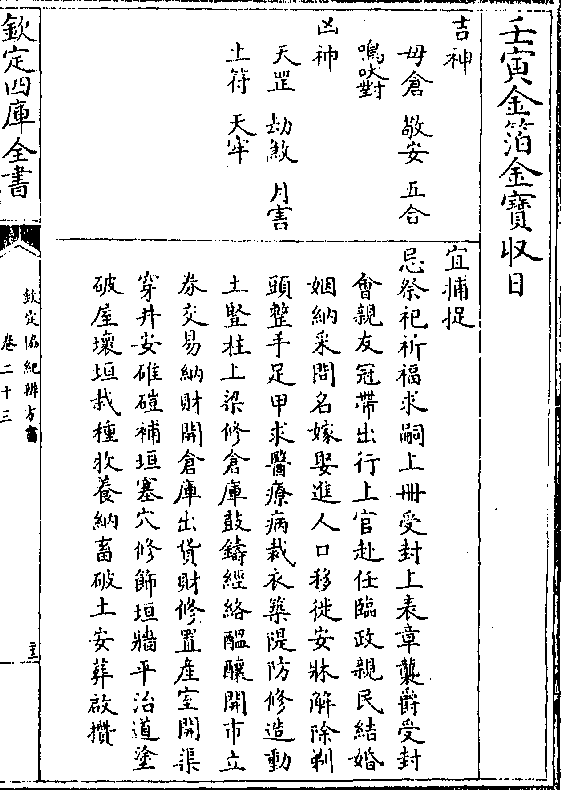 壬寅金箔金寶收日
吉神
母倉　敬安　五合
鳴吠對
凶神
天罡　劫煞　月害
土符　天牢
宜捕捉
忌祭祀祈福求嗣上冊受封上表章襲爵受封
會親友冠帶出行上官赴任臨政親民結婚
姻納采問名嫁娶進人口移徙安牀解除剃
頭整手足甲求醫療病裁衣築隄防修造動
土豎柱上梁修倉庫鼓鑄經絡醞釀開市立
券交易納財開倉庫出貨財修置產室開渠
穿井安碓磑補垣塞穴修飾垣牆平治道塗
破屋壞垣栽種牧養納畜破土安葬啟攢
欽定四庫全書
欽定協紀辨方書
卷二十三